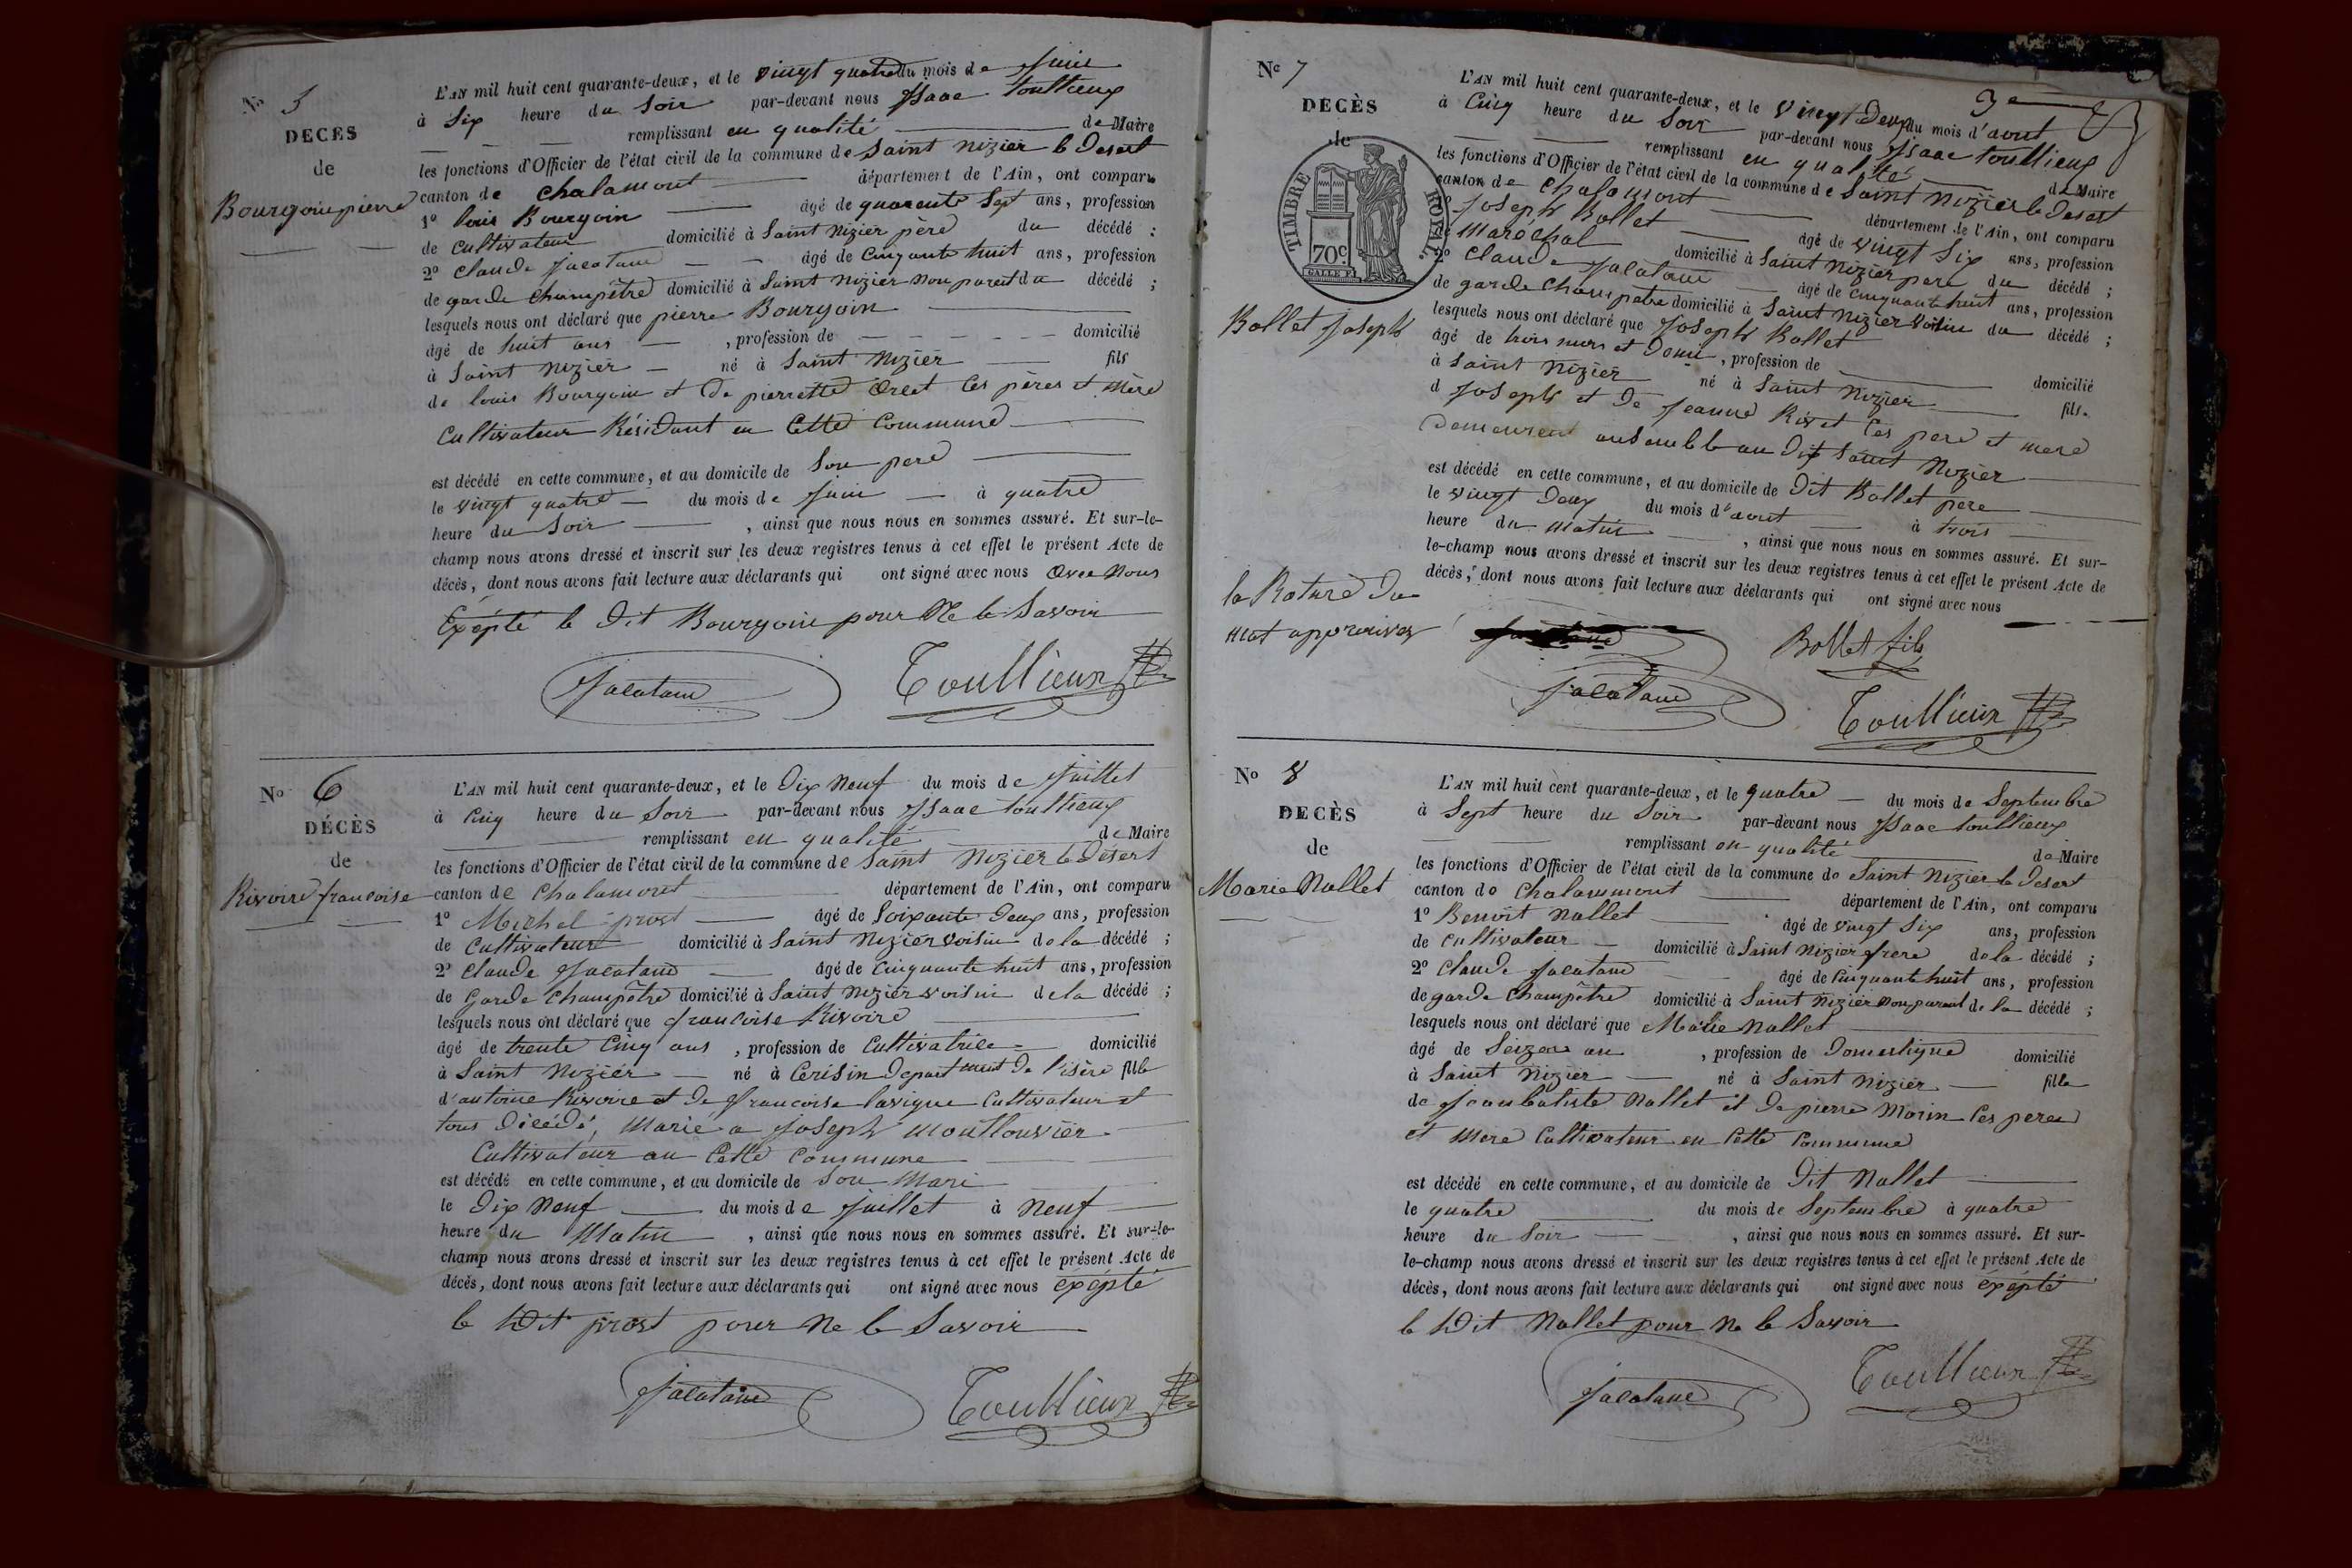 Nº 5
DECES
de
Bourgoin pierre
L'AN mil huit cent quarante-deux, et le vingt quatre du mois de Juin
à Six heure du Soir par-devant nous Isaac toullieux
remplissant en qualité de Maire
les fonctions d'Officier de l'état civil de la commune de Saint nizier le Desert
canton de Chalamont département de l'Ain, ont comparu
1º louis Bourgoin âgé de quarente Sept ans, profession
de Cultivateur domicilié à Saint Nizier père du décédé ;
2º Claude Jacatane âgé de Cinquante huit ans, profession
de garde Champêtre domicilié à Saint nizier non parent du décédé ;
lesquels nous ont déclaré que pierre Bourgoin
âgé de huit ans , profession de domicilié
à Saint Nizier né à Saint Nizier fils
de louis Bourgoin et De pierrette Ces pères et Mère
Cultivateur Résidant en Cette Commune
est décédé en cette commune, et au domicile de Son pere
le vingt quatre du mois de Juin à quatre
heure du Soir , ainsi que nous nous en sommes assuré. Et sur-le-
champ nous avons dressé et inscrit sur les deux registres tenus à cet effet le présent Acte de
décès, dont nous avons fait lecture aux déclarants qui ont signé avec nous avec Nous
Exépté le Dit Bourgoin pour Ne le Savoir
Jacatane Toullieux
Nº 6
DÉCÈS
de
Rivoire francoise
L'AN mil huit cent quarante-deux, et le Dix Neuf du mois de Juillet
à Cinq heure du Soir par-devant nous Isaac toullieux
remplissant en qualité de Maire
les fonctions d'Officier de l'état civil de la commune de Saint Nizier le Désert
canton de Chalamont département de l'Ain, ont comparu
1º Michel prost âgé de Soixante Deux ans, profession
de Cultivateur domicilié à Saint Nizier voisin de la décédé ;
2º Claude Jacatane âgé de Cinquante huit ans, profession
de Garde Champêtre domicilié à Saint Nizier voisin de la décédé ;
lesquels nous ont déclaré que francoise Rivoire
âgé de trente Cinq ans , profession de Cultivatrice domicilié
à Saint Nizier né à Cerisin Departement De l'isère fille
d'antoine Rivoire et De francoise lavigne Cultivateur et
tous Décédé, Marié a Joseph Mouttouvier
Cultivateur au Cette Commune
est décédé en cette commune, et au domicile de Son Mari
le Dix Neuf du mois de Juillet à Neuf
heure du Matin , ainsi que nous nous en sommes assuré. Et sur-le-
champ nous avons dressé et inscrit sur les deux registres tenus à cet effet le présent Acte de
décès, dont nous avons fait lecture aux déclarants qui ont signé avec nous éxépté
le Dit prost pour Ne le Savoir
Jacatane Toullieux
3e
Nº 7
DECÈS
de
TIMBRE ROYAL
70c
Bollet Joseph
L'AN mil huit cent quarante-deux, et le Vingt Deux du mois d'aout
à Cinq heure du Soir par-devant nous Isaac toullieux
remplissant en qualité de Maire
les fonctions d'Officier de l'état civil de la commune de Saint Nizier le Desert
canton de Chalamont département de l'Ain, ont comparu
1º Joseph Bollet âgé de vingt Six ans, profession
de Maréchal domicilié à Saint Nizier pere du décédé ;
2º Claude Jacatane âgé de Cinquante huit ans, profession
de garde Champêtre domicilié à Saint Nizier Voisin du décédé ;
lesquels nous ont déclaré que Joseph Bollet
âgé de trois mois et Demi , profession de domicilié
à Saint Nizier né à Saint Nizier fils
d Joseph et De Jeanne Rivet Ces pere et mere
Demeurent ensemble au Dit Saint Nizier
est décédé en cette commune, et au domicile de Dit Bollet pere
le vingt Deux du mois d'aout à trois
heure du Matin , ainsi que nous nous en sommes assuré. Et sur-
le-champ nous avons dressé et inscrit sur les deux registres tenus à cet effet le présent Acte de
décès, dont nous avons fait lecture aux déclarants qui ont signé avec nous
la Rature Du
mot approuver
Bollet fils
Jacatane
Toullieux
Nº 8
DECÈS
de
Marie Nallet
L'AN mil huit cent quarante-deux, et le quatre du mois de Septembre
à Sept heure du Soir par-devant nous Isaac toullieux
remplissant en qualité de Maire
les fonctions d'Officier de l'état civil de la commune de Saint Nizier le Desert
canton de Chalammont département de l'Ain, ont comparu
1º Benoit Nallet âgé de vingt Six ans, profession
de Cultivateur domicilié à Saint Nizier frere de la décédé ;
2º Claude Jacatane âgé de Cinquante huit ans, profession
de garde Champêtre domicilié à Saint Nizier non parent de la décédé ;
lesquels nous ont déclaré que Marie Nallet
âgé de Seize an , profession de Domestique domicilié
à Saint Nizier né à Saint Nizier fille
de Jean batiste Nallet et De pierre Morin Ces peres
et Mere Cultivateur en Cette Commune
est décédé en cette commune, et au domicile de Dit Nallet
le quatre du mois de Septembre à quatre
heure du Soir , ainsi que nous nous en sommes assuré. Et sur-
le-champ nous avons dressé et inscrit sur les deux registres tenus à cet effet le présent Acte de
décès, dont nous avons fait lecture aux déclarants qui ont signé avec nous éxépté
le Dit Nallet pour Ne le Savoir
Jacatane Toullieux